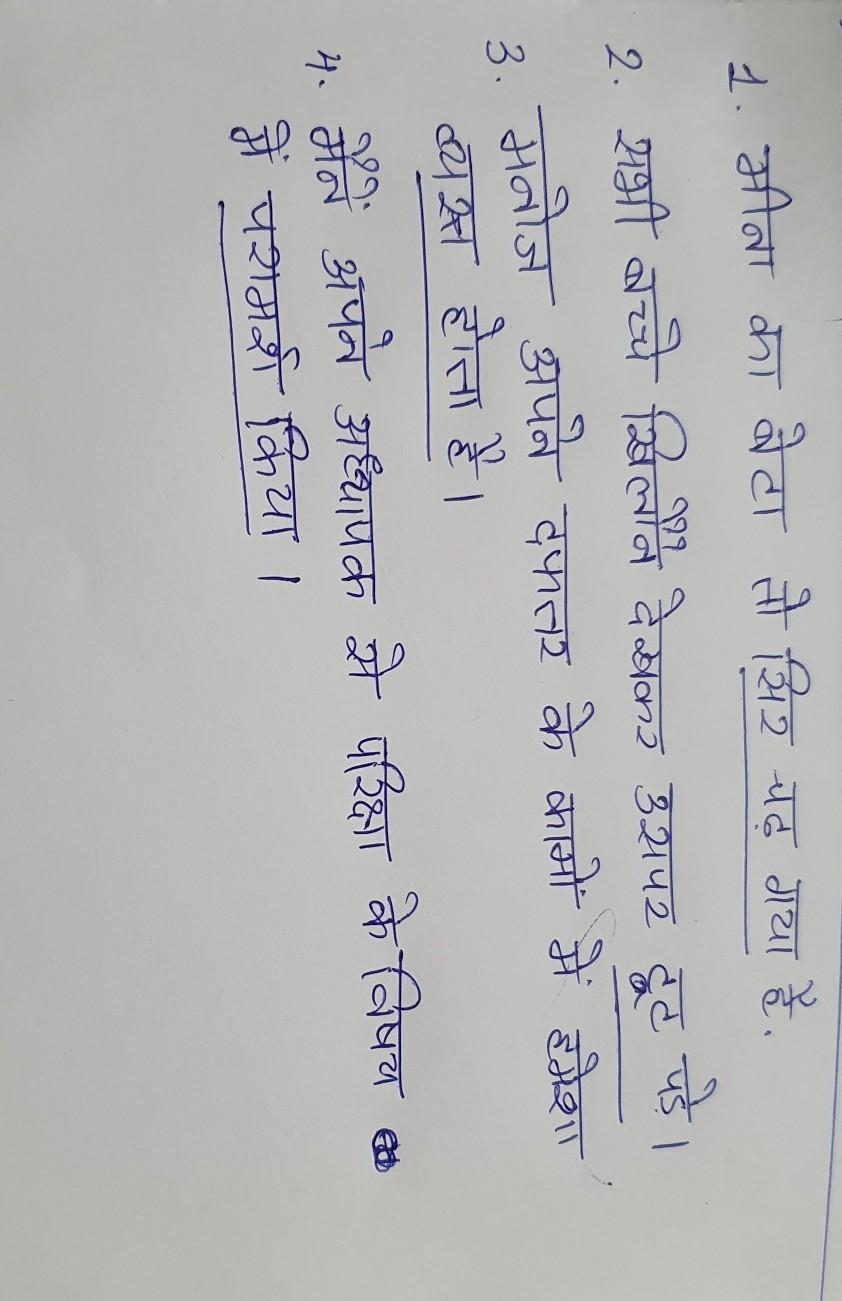 1. मीना का बेटा तो सिर चढ़ गया है.
2. सभी बच्चे खिलौने देखकर उसपर टूट पड़े।
3. मनोज अपने दफ्तर के कामों में हमेशा
व्यस्त होता है।
4. मैंने अपने अध्यापक से परिक्षा के विषय
में परामर्श किया।